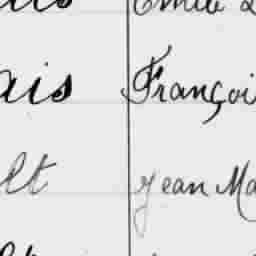 ais Emile
ais Françoi
lt Jean Ma